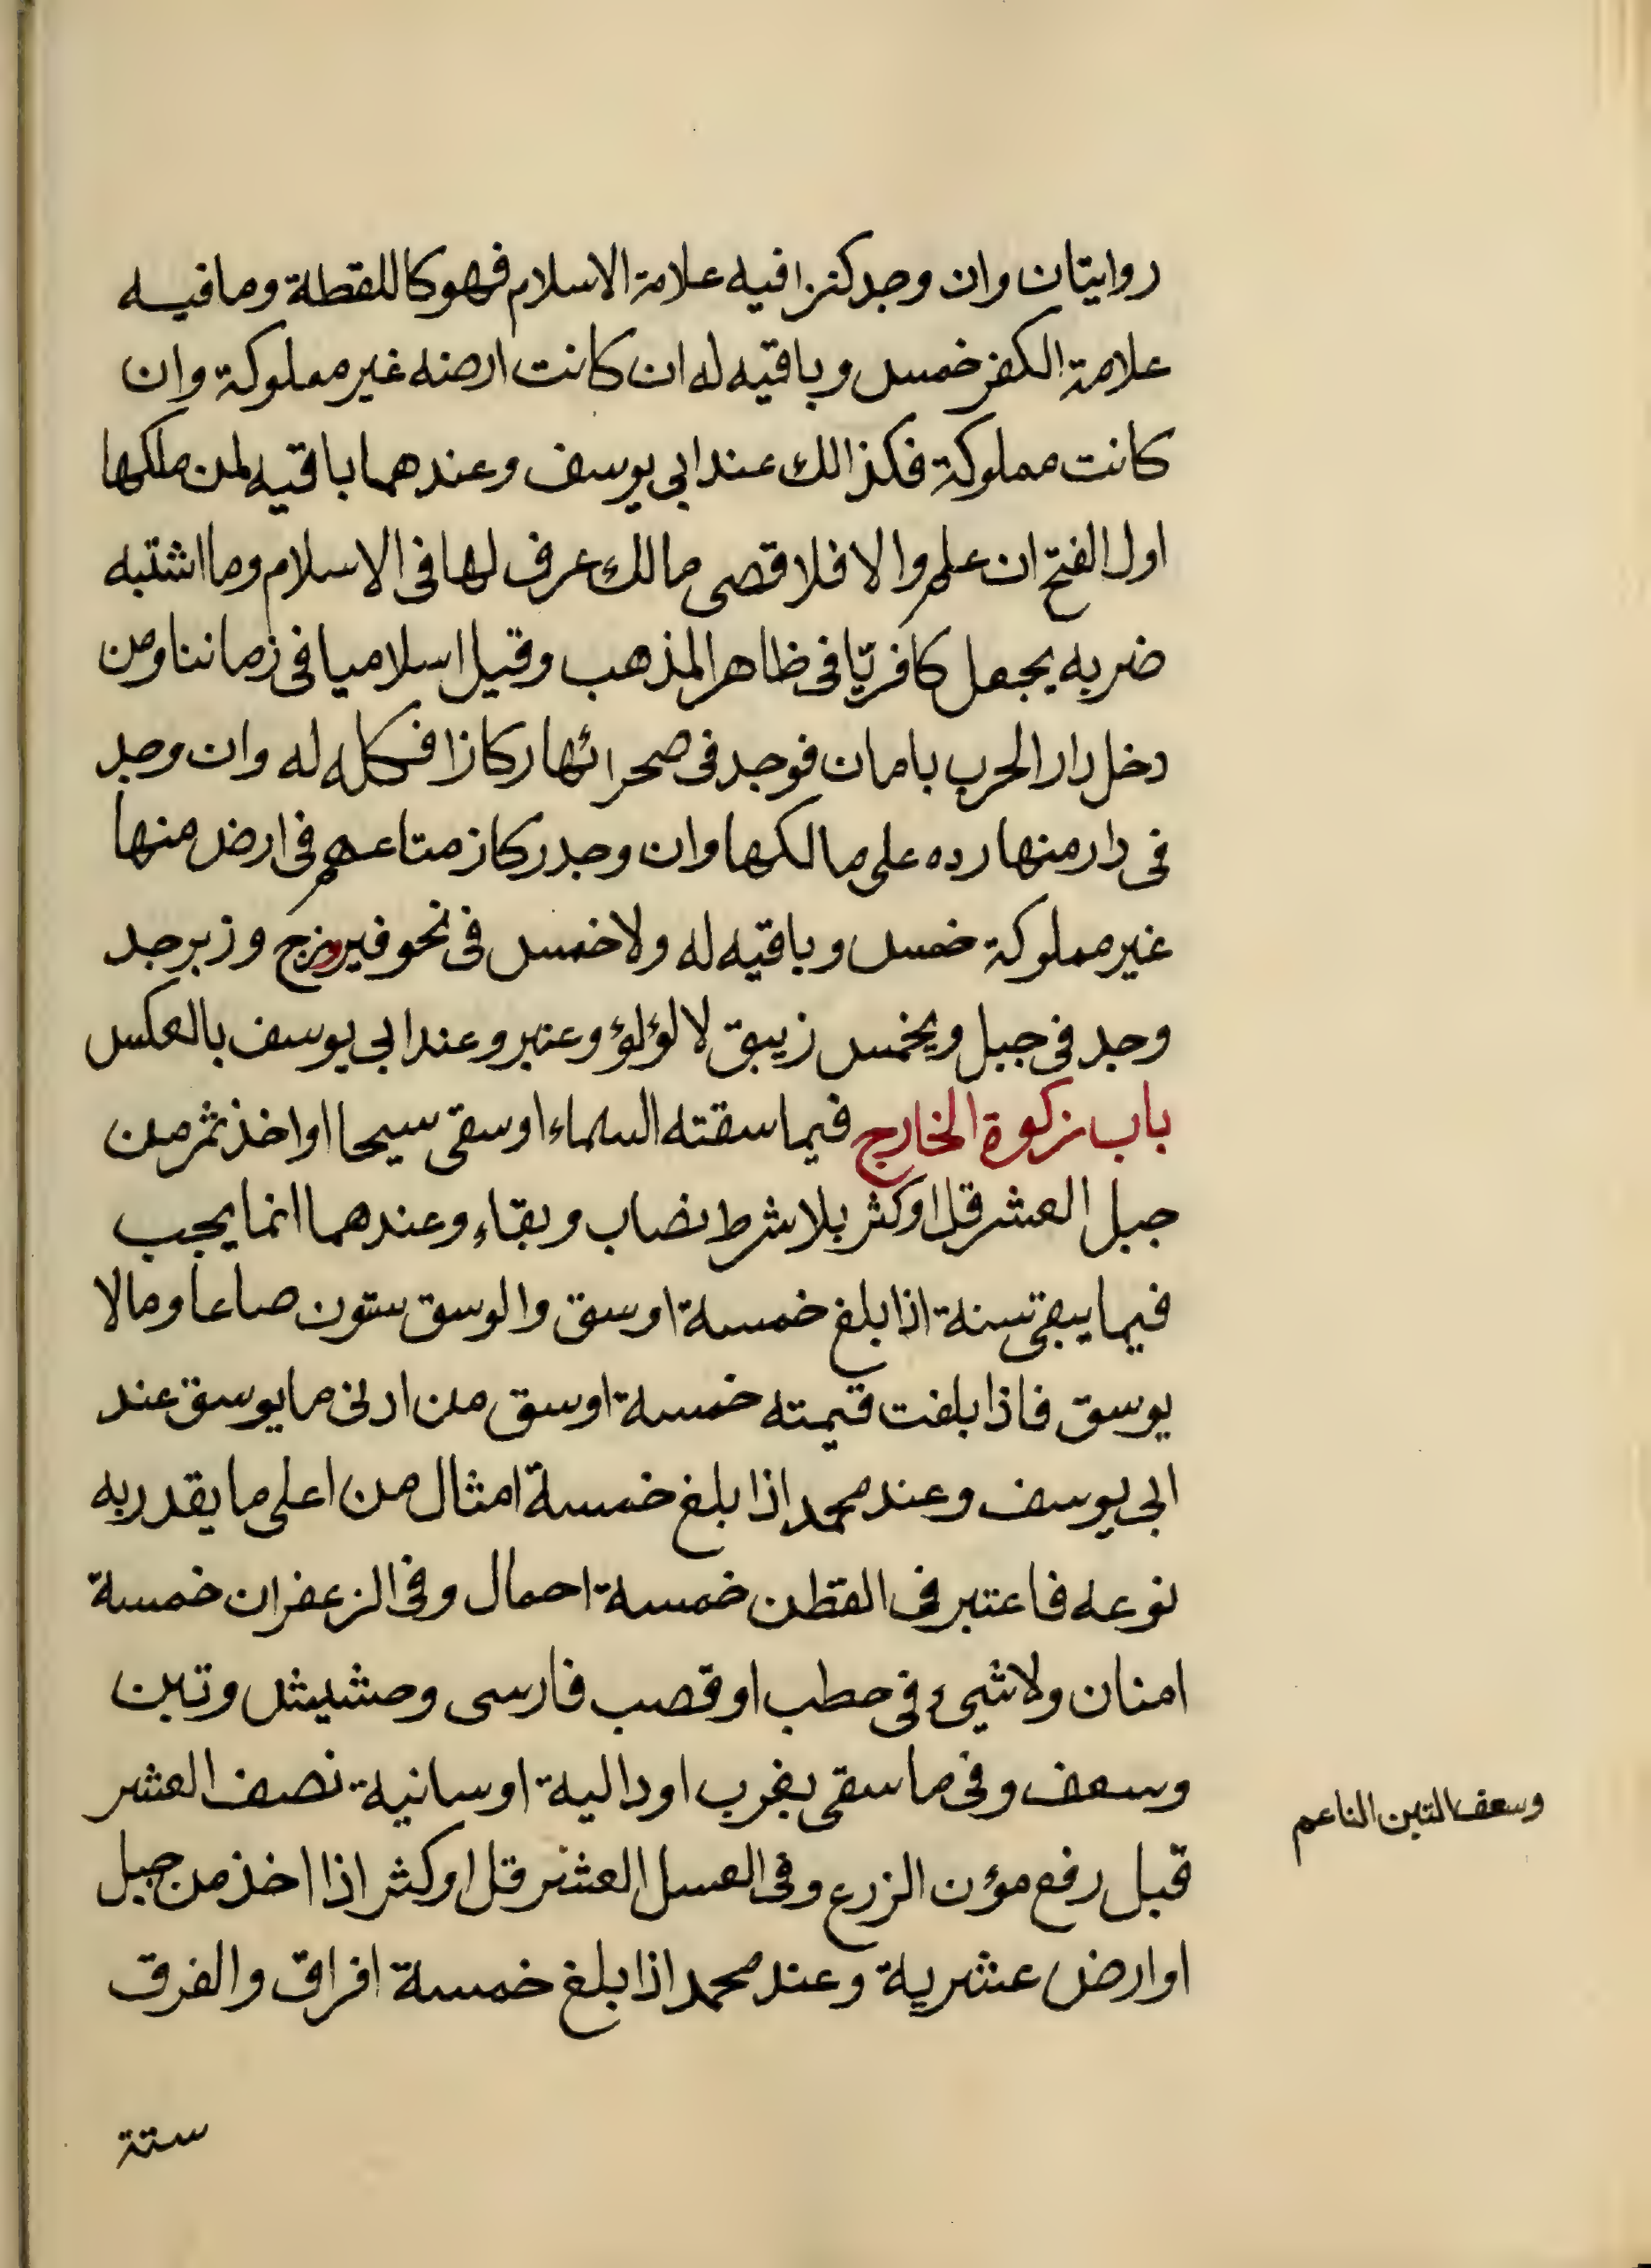 روايتان وان وجد كنزا فيه علامة الاسلام فهو كاللقطة وما فيه
علامة الكفر خمس وباقيه له ان كانت ارضه غير مملوكة وان
كانت مملوكة فكذالك عند ابى يوسف وعندهما باقيه لمن ملكها
اول الفتح ان علم والا فلاقصى مالك عرف لها فى الاسلام وما اشتبه
ضربه يجعل كافريّا فى ظاهر المذهب وقيل اسلاميا فى زماننا ومن
دخل دار الحرب بامان فوجد فى صحرائها ركازا فكله له وان وجد
فى دار منها رده على مالكها وان وجد ركاز متاعهم فى ارض منها
غير مملوكة خمس وباقيه له ولا خمس فى نحو فيروزج وزبرجد
وجد فى جبل ويخمس زيبق لا لؤلؤ وعنبر وعند ابى يوسف بالعكس
باب زكوة الخارج فيما سقته السماء او سقى سيحا او اخذ ثمر من
جبل العشر قل او كثر بلا شرط نصاب وبقاء وعندهما انما يجب
فيما يبقى سنة اذا بلغ خمسة اوسق والوسق ستون صاعا وما لا
يوسق فاذا بلغت قيمته خمسة اوسق من ادنى ما يوسق عند
ابى يوسف وعند محمد اذا بلغ خمسة امثال من اعلى ما يقدر به
نوعه فاعتبر فى القطن خمسة احمال وفى الزعفران خمسة
امنان ولا شيء فى حطب او قصب فارسى وحشيش وتبن
وسعف وفى ما سقى بغرب او دالية او سانية نصف العشر
قبل رفع مؤن الزرع وفى العسل العشر قل او كثر اذا اخذ من جبل
او ارض عشرية وعند محمد اذا بلغ خمسة افراق والفرق
ستة
وسعف التبن الناعم